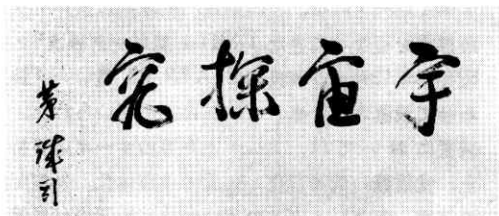 宇宙探究
茅誠司